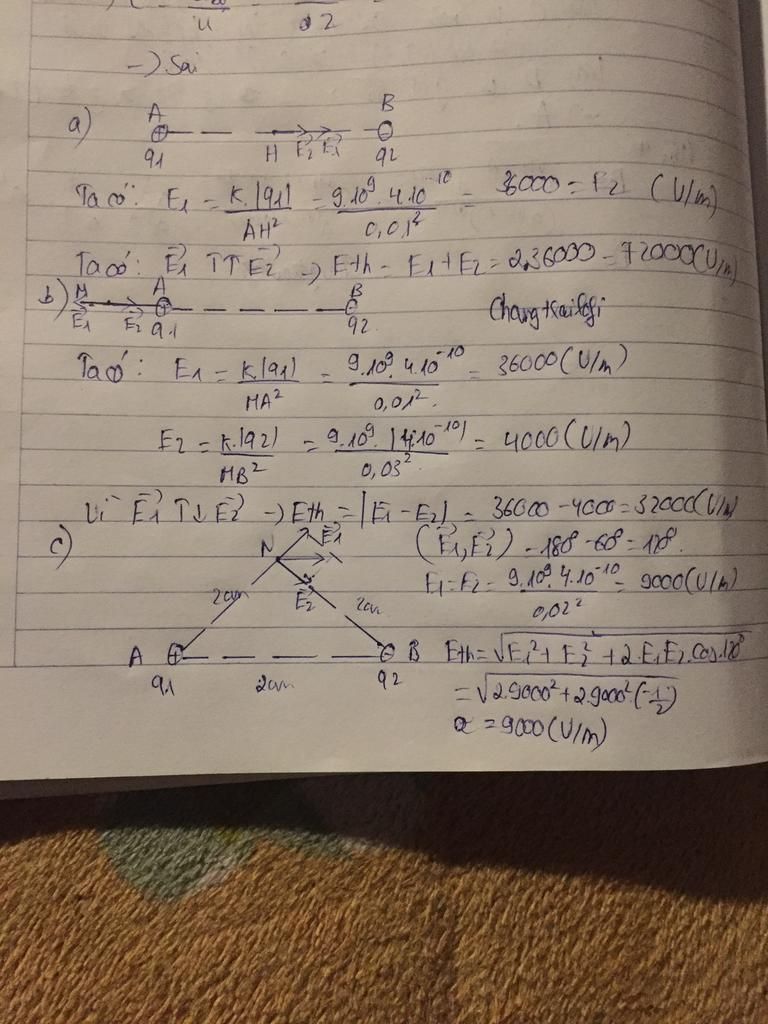 u d2
-> Sai
a) A B
H E2 E1
q1 q2
Ta có: E1 = K.|q1| / AH² = 9.10⁹.4.10⁻¹⁰ / 0,01² = 36000 = E2 (V/m)
Ta có: E1 ↑↑ E2 -> Eth = E1 + E2 = 2.36000 = 72000 (V/m)
b) M A B
E1 E2 q1 q2
Ta có: E1 = K.|q1| / MA² = 9.10⁹.4.10⁻¹⁰ / 0,01² = 36000 (V/m)
E2 = K.|q2| / MB² = 9.10⁹.|4.10⁻¹⁰| / 0,03² = 4000 (V/m)
Vì E1 ↑↓ E2 -> Eth = |E1 - E2| = 36000 - 4000 = 32000 (V/m)
c) N E1
E2
2cm 2cm
A B
q1 2cm q2
(E1, E2) = 180 - 60 = 120.
E1 = E2 = 9.10⁹.4.10⁻¹⁰ / 0,02² = 9000 (V/m)
Eth = √E1² + E2² + 2.E1E2.Cos120°
= √2.9000² + 2.9000².(-1/2)
= 9000 (V/m)